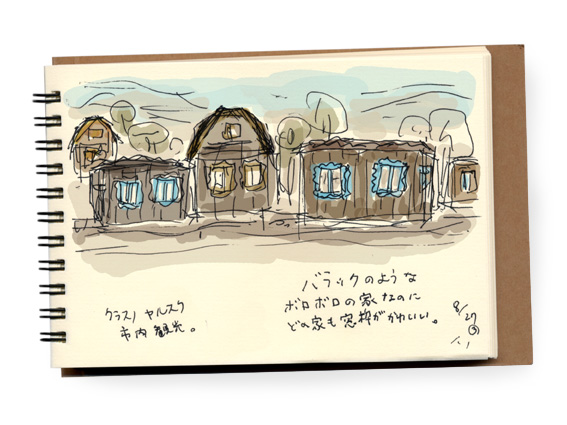 クラスノヤルスク
市内観光。
バラックのような
ボロボロの家なのに
どの家も窓枠がかわいい。
8/27